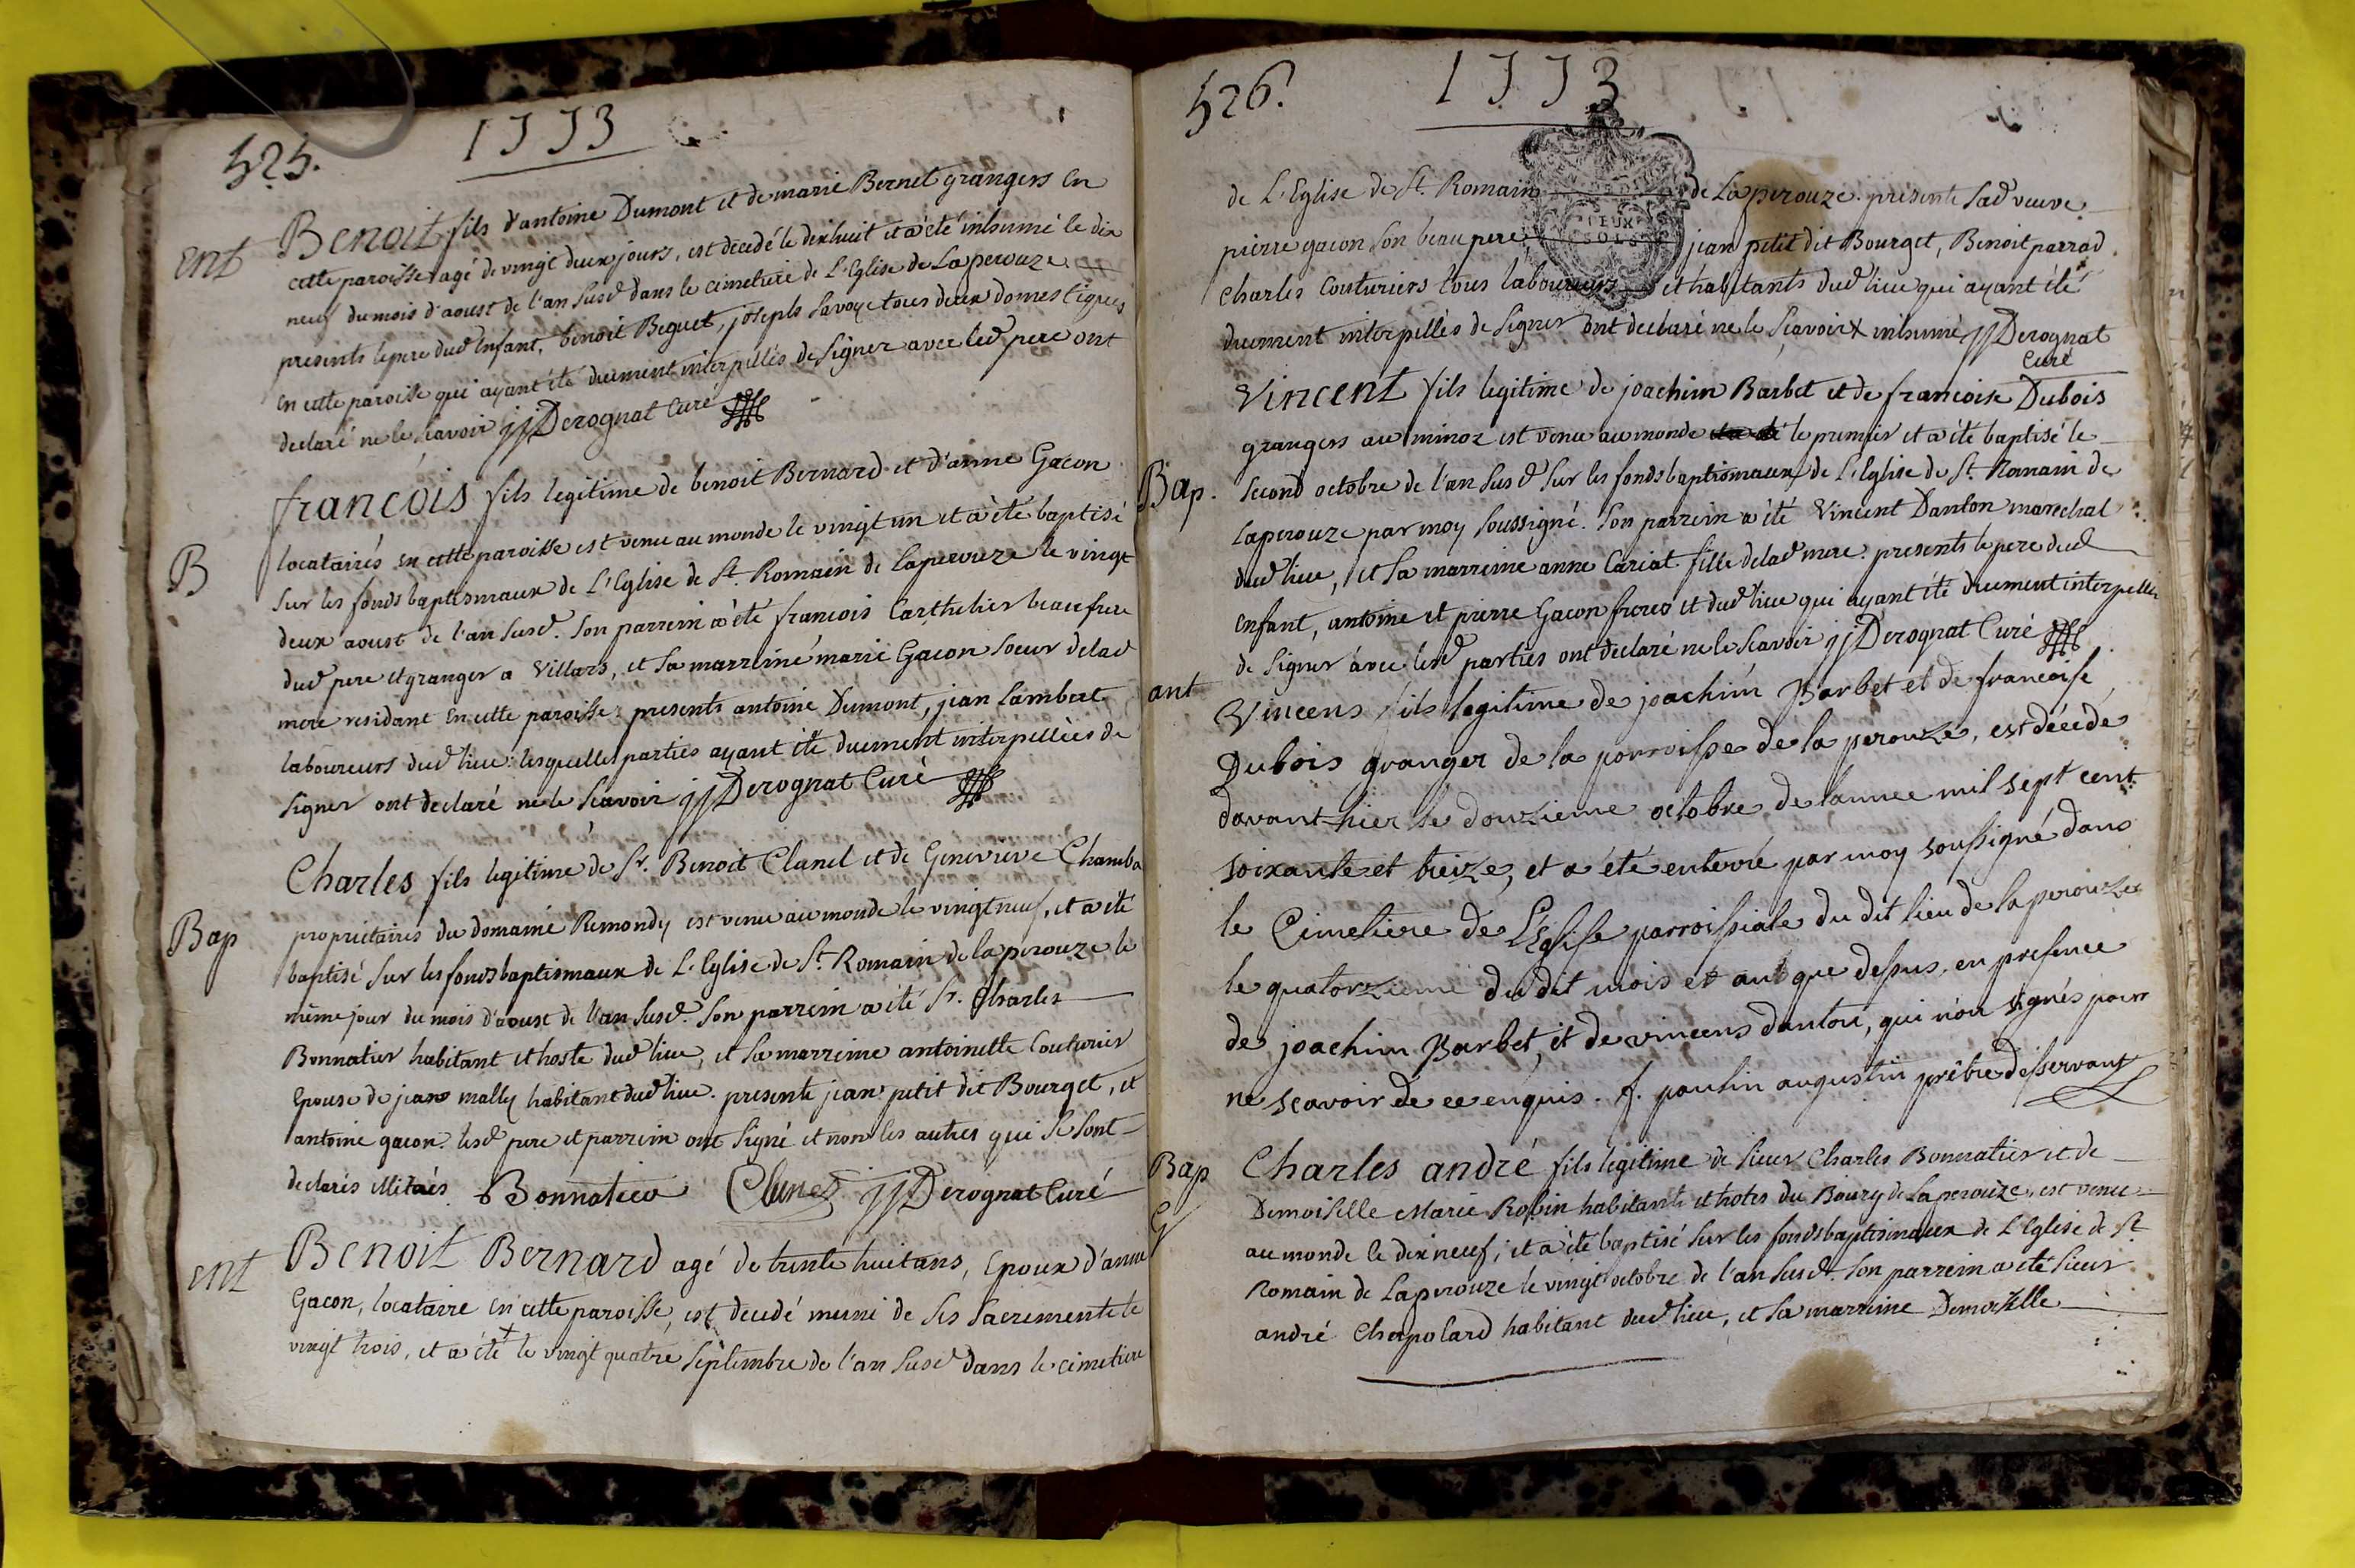 525.
1773
ent
Benoit fils d'antoine Dumont et de marie Bernet grangers en
cette paroisse agé de vingt deux jours, est decedé le dixhuit et a été inhumé le dix
neuf du mois d'aoust de l'an susd dans le cimetiere de L'Eglise de Laperouze
presents le pere dud enfant, benoit Beguet, joseph Savoye tous deux domestiques
en cette paroisse qui ayant été duement interpellés de signer avec led pere ont
declaré ne le scavoir jjDerognat Curé
B
françois fils legitime de benoit Bernard et d'anne Gacon
locataires en cette paroisse est venu au monde le vingt un et a été baptisé
sur les fonds baptismaux de L'Eglise de St. Romain de Laperouze le vingt
deux aoust de l'an susd. Son parrein a été francois Carthelier beaufrere
dud pere et granger a Villars, et sa marreine marie Gacon soeur delad
mere residant en cette paroisse. presents antoine Dumont, jean Lambert
laboureurs dud lieu: lesquelles parties ayant été duement interpellées de
signer ont declaré ne le scavoir jjDerognat Curé
Bap
Charles fils legitime de Sr. Benoit Clanel et de Genevieve Chamba
proprietaires du domaine Remondy est venu au monde le vingt neuf, et a été
baptisé sur les fonds baptismaux de L'Eglise de St. Romain de laperouze le
même jour du mois d'aoust de l'an susd. Son parrein a été Sr. Charles
Bonnatier habitant et hoste dud lieu, et sa marreine antoinette Couturier
epouse de jean mally habitant dud lieu. presents jean petit dit Bourget, et
antoine gacon. lesd pere et parrein ont signé et non les autres qui se sont
declarés illitrés. Bonnatier Clunel jjDerognat Curé
ent
Benoit Bernard agé de trente huit ans, epoux d'anne
Gacon, locataire en cette paroisse, est decedé muni de ses sacrements le
vingt trois, et a été + le vingt quatre septembre de l'an susd dans le cimetiere
526.
1773
de L'Eglise de St. Romain de Laperouze. presents lad veuve
DEUX
SOLS
pierre gacon son beau pere, jean petit dit Bourget, Benoit parrad
charles Couturiers tous laboureurs et habitants dud lieu qui ayant été
duement interpellés de signer ont declaré ne le scavoir x inhumé jjDerognat
Curé
Bap.
Vincent fils legitime de joachim Barbet et de francoise Dubois
grangers au minoz est venu au monde le premier et a été baptisé le
second octobre de l'an susd sur les fonds baptismaux de L'Eglise de St. Romain de
Laperouze par moy soussigné. Son parrein a été Vincent Danton marechal
dud lieu, et sa marreine anne Cariat fille delad mere. presents le pere dud
enfant, antoine et pierre Gacon freres et dud lieu qui ayant été duement interpellés
de signer avec lesd parties ont declaré ne le scavoir jjDerognat Curé
ant
Vincens fils legitime de joachim Barbet et de francoise
Dubois granger de la parroisse de la perouze, est décédé
davant hier le douzieme octobre de lannee mil sept cent
soixante et treize, et a été enterré par moy soussigné dans
le Cimetiere de L'Eglise parroissiale du dit lieu de la perouze
le quatorzieme du dit mois et an que dessus, en presence
de joachim Barbet, et de vincens danton, qui n'on signés pour
ne scavoir de ce enquis. f. paulin augustin prêtre desservant
Bap
G
Charles andré fils legitime de sieur Charles Bonnatier et de
Demoiselle Marie Robin habitants et hotes du Bourg de Laperouze, est venu
au monde le dix neuf, et a été baptisé sur les fonds baptismaux de L'Eglise de St.
Romain de Laperouze le vingt octobre de l'an susd. Son parrein a été sieur
andré Chapolard habitant dud lieu, et sa marreine Demoiselle